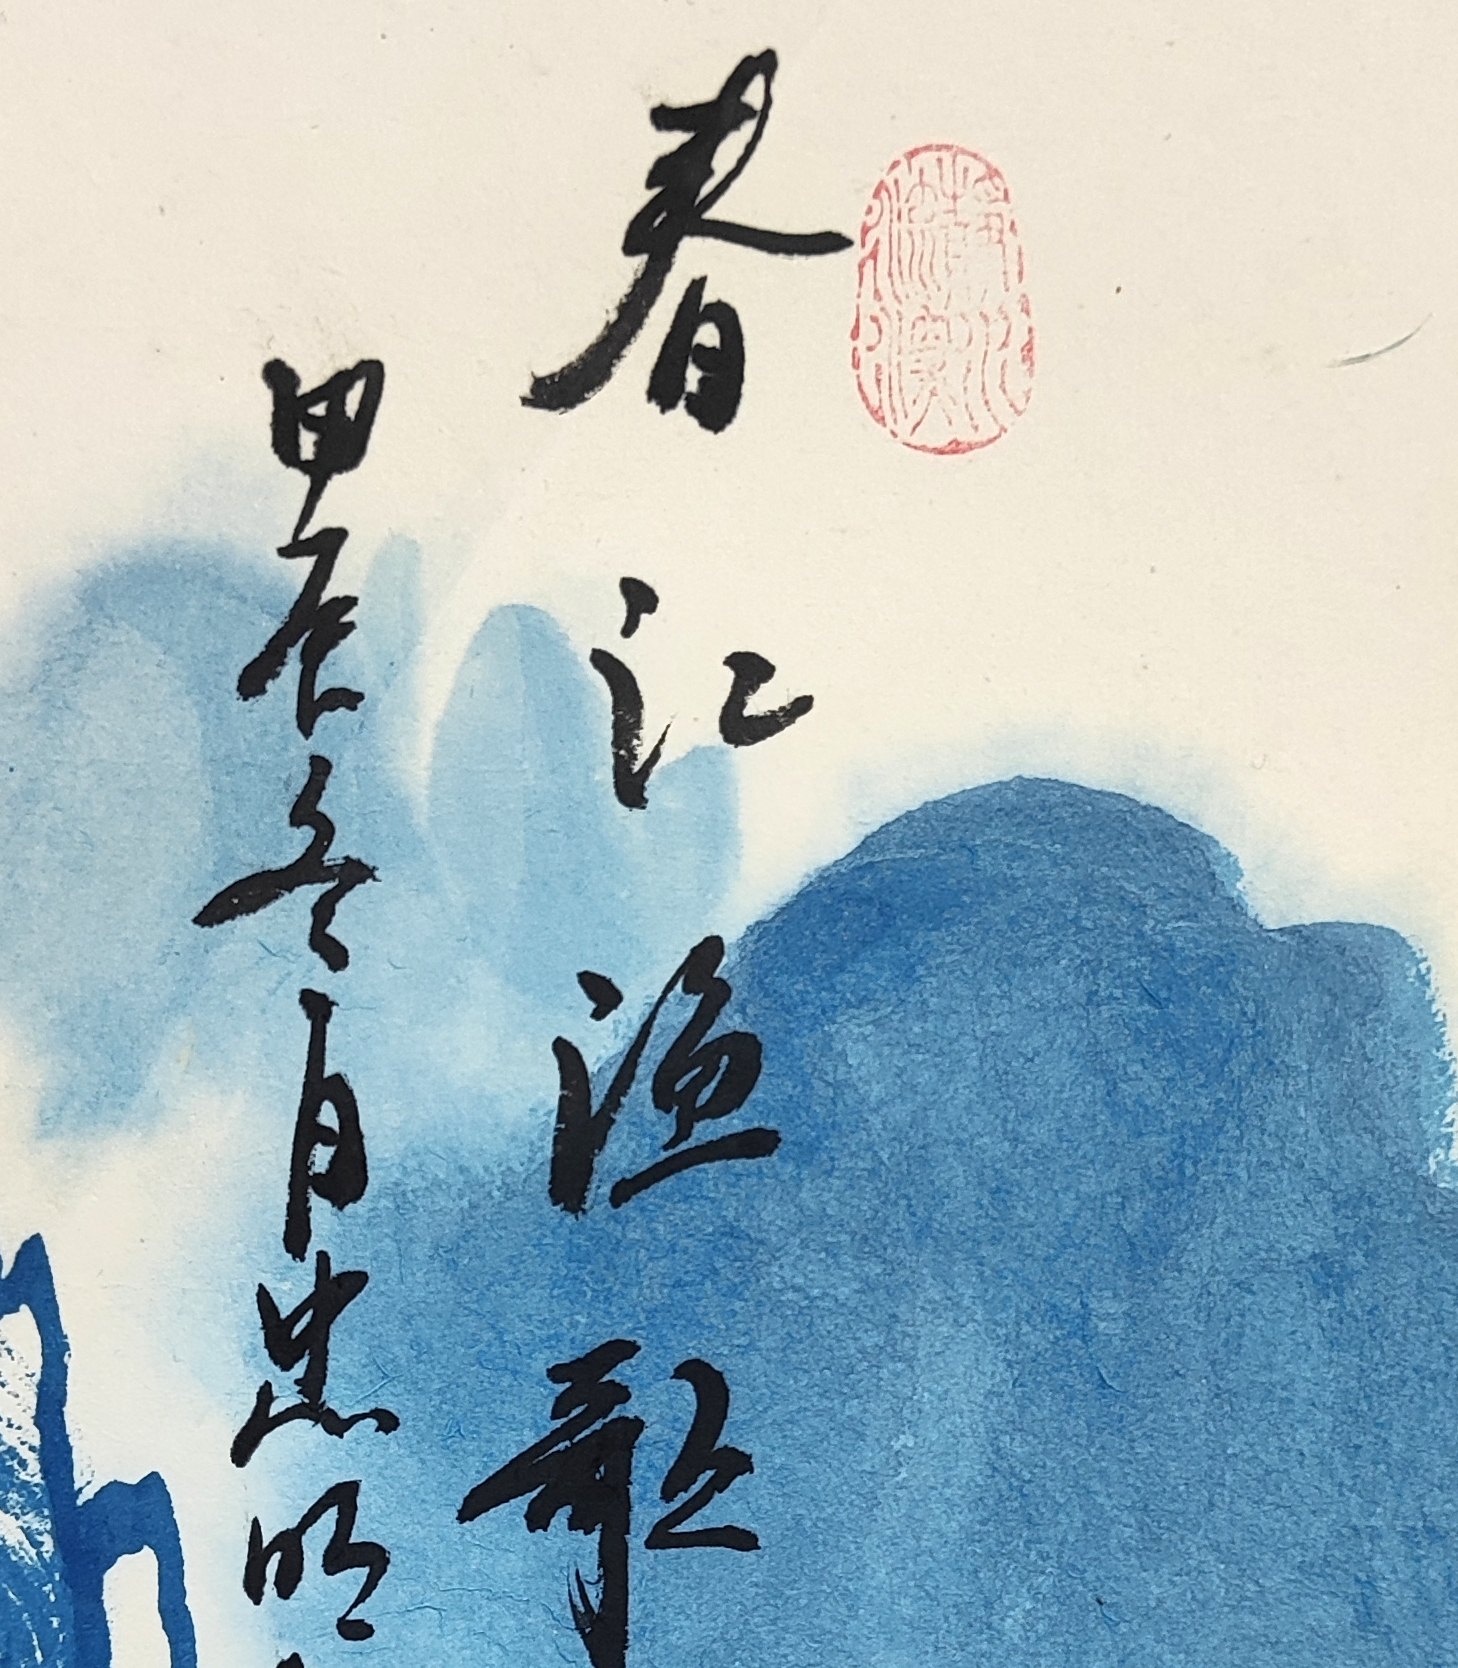 春江渔歌
甲辰冬月忠明